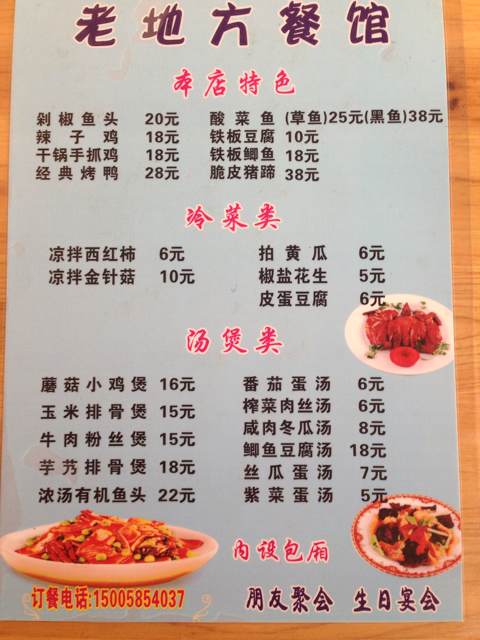 老地方餐馆
本店特色
剁椒鱼头 20元 酸菜鱼 (草鱼)25元(黑鱼)38元
辣子鸡 18元 铁板豆腐 10元
干锅手抓鸡 18元 铁板鲫鱼 18元
经典烤鸭 28元 脆皮猪蹄 38元
冷菜类
凉拌西红柿 6元 拍黄瓜 6元
凉拌金针菇 10元 椒盐花生 5元
皮蛋豆腐 6元
汤煲类
蘑菇小鸡煲 16元 番茄蛋汤 6元
玉米排骨煲 15元 榨菜肉丝汤 6元
牛肉粉丝煲 15元 咸肉冬瓜汤 8元
芋艿排骨煲 18元 鲫鱼豆腐汤 18元
浓汤有机鱼头 22元 丝瓜蛋汤 7元
紫菜蛋汤 5元
内设包厢
订餐电话:15005854037 朋友聚会 生日宴会